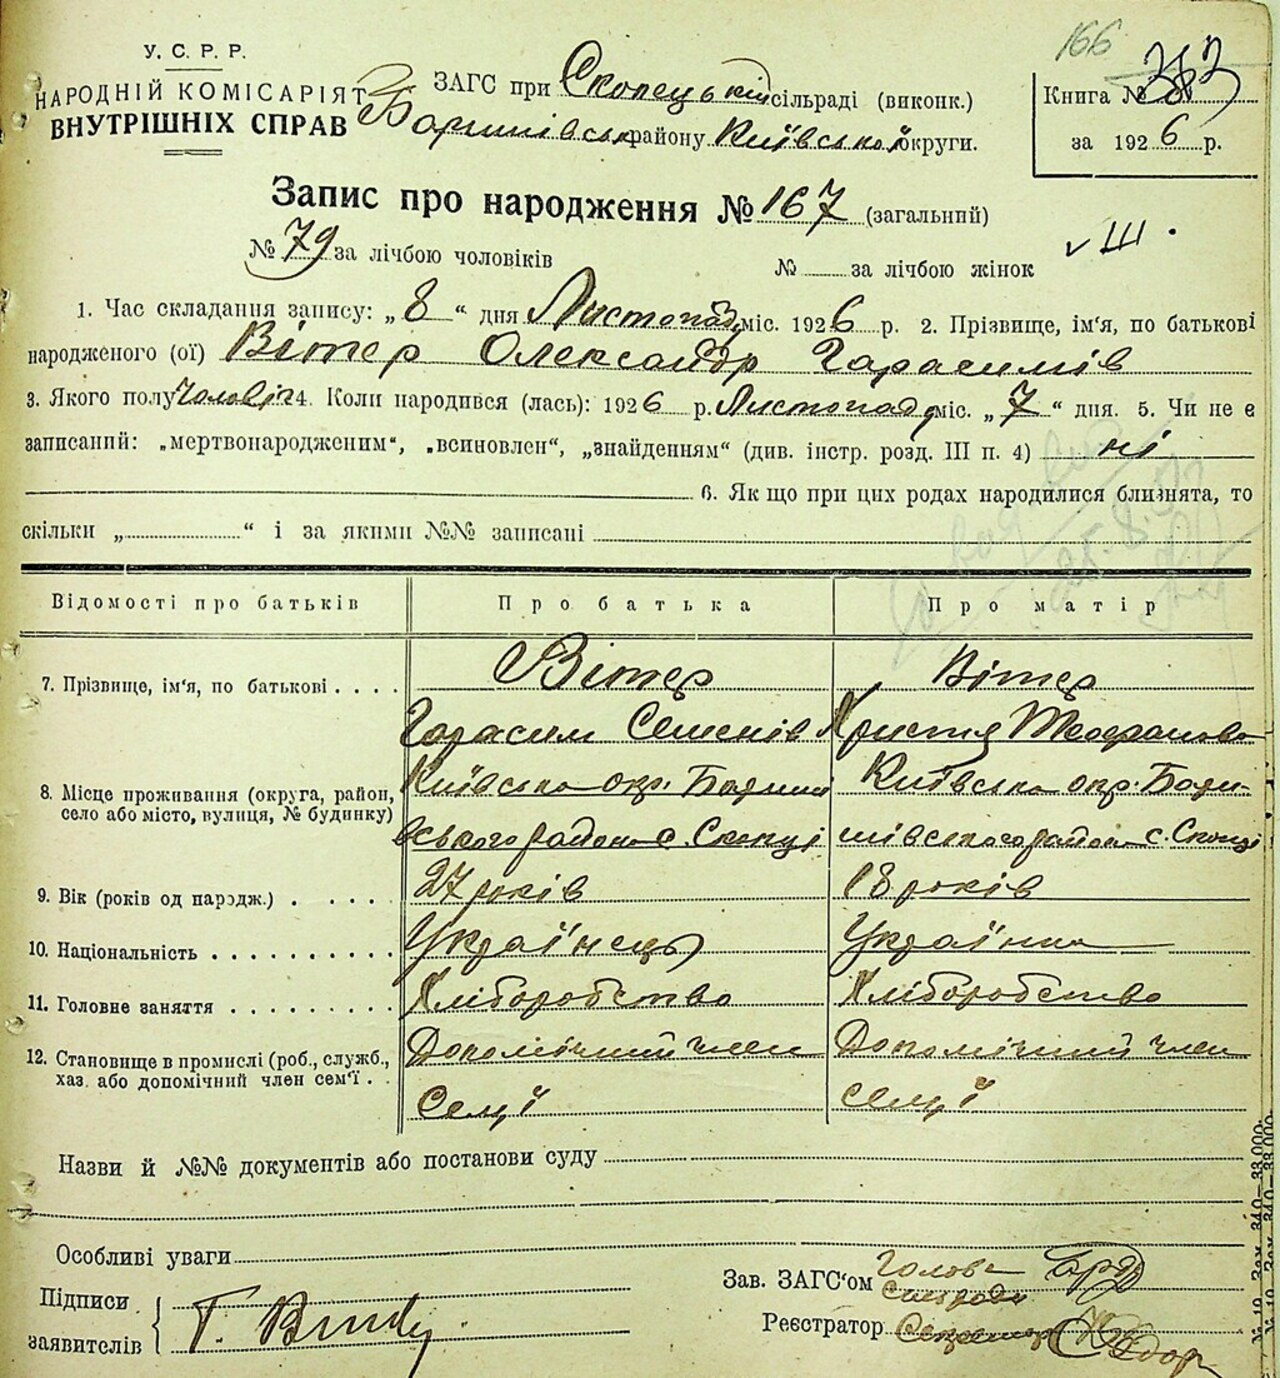 166
У. С. Р. Р.
НАРОДНІЙ КОМІСАРІЯТ
ВНУТРІШНІХ СПРАВ
ЗАГС при Скопецькій сільраді (виконк.)
Баришівськ району Київської округи.
Книга №
за 1926 р.
Запис про народження № 167 (загальний)
№ 79 за лічбою чоловіків
№ за лічбою жінок
1. Час складання запису: „8“ дня Листопад міс. 1926 р. 2. Прізвище, ім'я, по батькові
народженого (ої) Вітер Олександр Гарасимів
3. Якого полу чоловіч 4. Коли народився (лась): 1926 р. Листопад міс. „7“ дня. 5. Чи не є
записаний: „мертвонародженим“, „всиновлен“, „знайденням“ (див. інстр. розд. III п. 4) ні
6. Як що при цих родах народилися близнята, то
скільки „ “ і за якими №№ записані
Відомості про батьків Про батька Про матір
7. Прізвище, ім'я, по батькові Вітер Вітер
Гарасим Семенів Христя Теофанова
8. Місце проживання (округа, район, село або місто, вулиця, № будинку) Київська окр. Бариші Київська окр. Бари-
вського района с. Скопці шівського района с. Скопці
9. Вік (років од народж.) 27 років 18 років
10. Національність Українець Українка
11. Головне заняття Хліборобство Хліборобство
12. Становище в промислі (роб., служб., Допомічний член Допомічний член
хаз. або допомічний член сем'ї Семї семї
Назви й №№ документів або постанови суду
Особливі уваги
Підписи
заявителів
Зав. ЗАГС'ом Голова
Сільради
Реєстратор Секретар